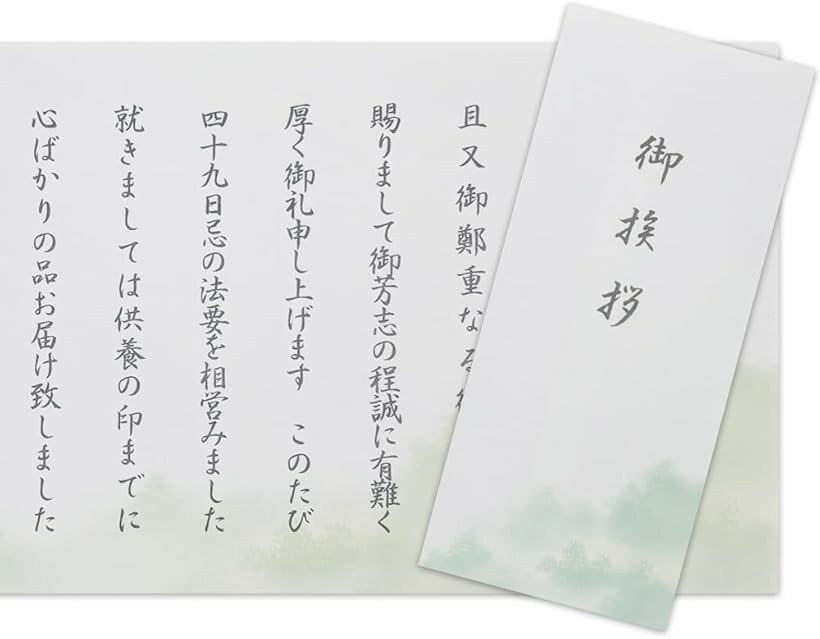 御挨拶
且又御鄭重なる
賜りまして御芳志の程誠に有難く
厚く御礼申し上げます　このたび
四十九日忌の法要を相営みました
就きましては供養の印までに
心ばかりの品お届け致しました